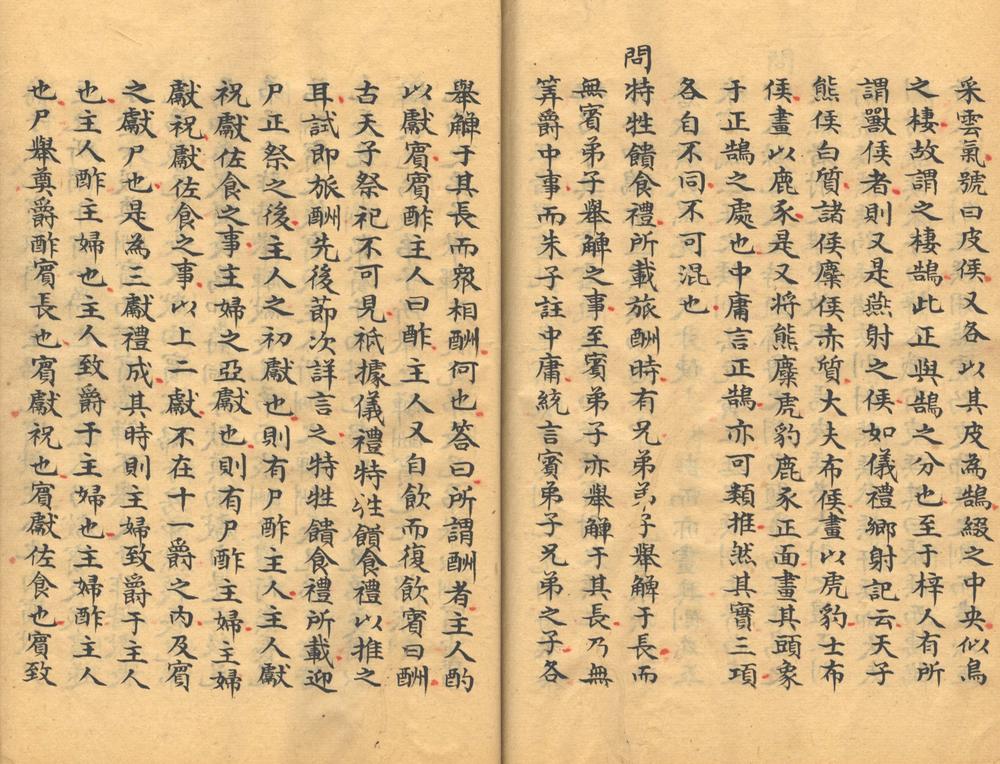 采雲氣號曰皮侯又各以其皮為鵠綴之中央似鳥
之棲故謂之棲鵠此正與鵠之分也至于梓人有所
謂獸侯者則又是燕射之侯如儀禮鄉射記云天子
熊侯白質諸侯麋侯赤質大夫布侯畫以虎豹士布
侯畫以鹿豕是又將熊麋虎豹鹿豕正面畫其頭象
于正鵠之處也中庸言正鵠亦可類推然其實三項
各自不同不可混也
問特牲饋食禮所載旅酬時有兄弟弟子舉觶于長而
無賓弟子舉觶之事至賓弟子亦舉觶于其長乃無
筭爵中事而朱子註中庸統言賓弟子兄弟之子各
舉觶于其長而眾相酬何也答曰所謂酬者主人酌
以獻賓賓酢主人曰酢主人又自飲而復飲賓曰酬
古天子祭祀不可見祇據儀禮特牲饋食禮以推之
耳試即旅酬先後節次詳言之特牲饋食禮所載迎
尸正祭之後主人之初獻也則有尸酢主人主人獻
祝獻佐食之事主婦之亞獻也則有尸酢主婦主婦
獻祝獻佐食之事以上二獻不在十一爵之內及賓
之獻尸也是為三獻禮成其時則主婦致爵于主人
也主人酢主婦也主人致爵于主婦也主婦酢主人
也尸舉奠爵酢賓長也賓獻祝也賓獻佐食也賓致